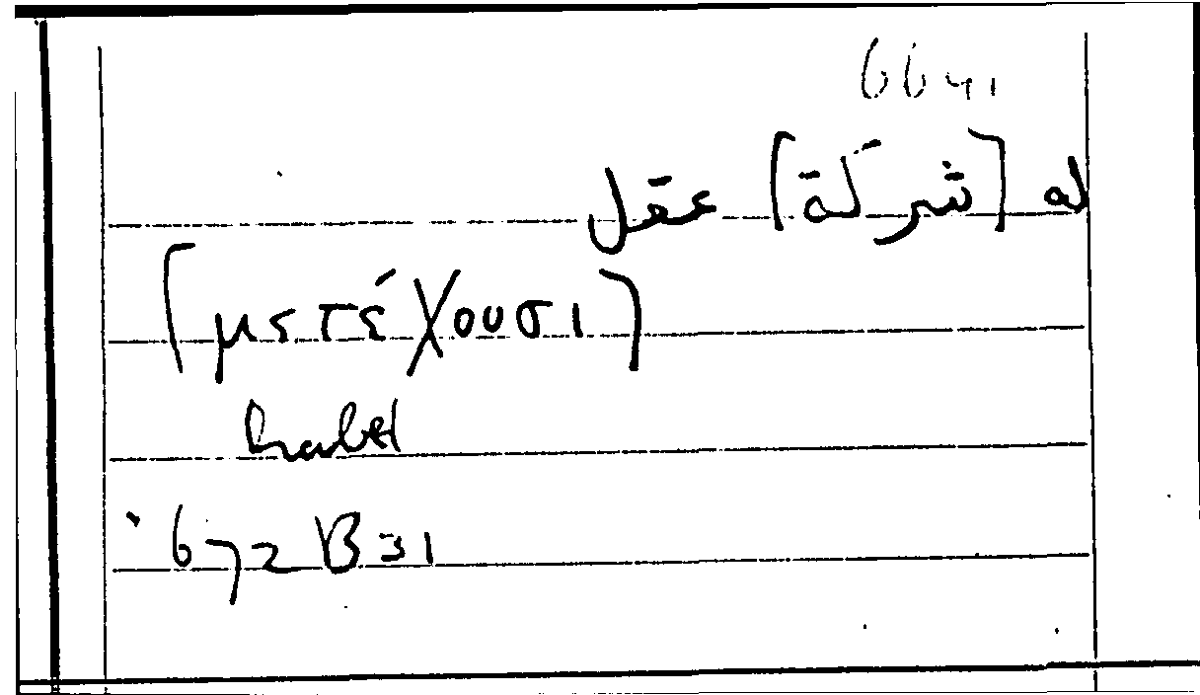 6641
له [شركة] عقل
[μετέχουσι]
habet
672 B31